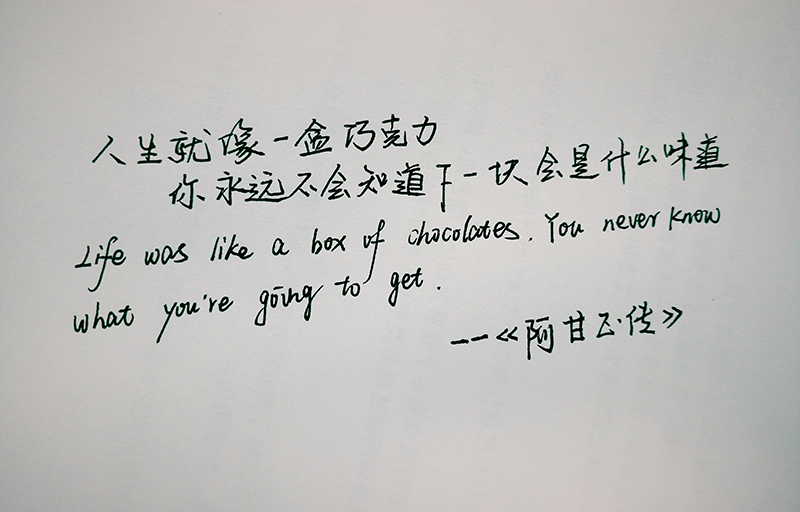 人生就像一盒巧克力
你永远不会知道下一块会是什么味道
Life was like a box of chocolates. You never know
what you're going to get.
——《阿甘正传》